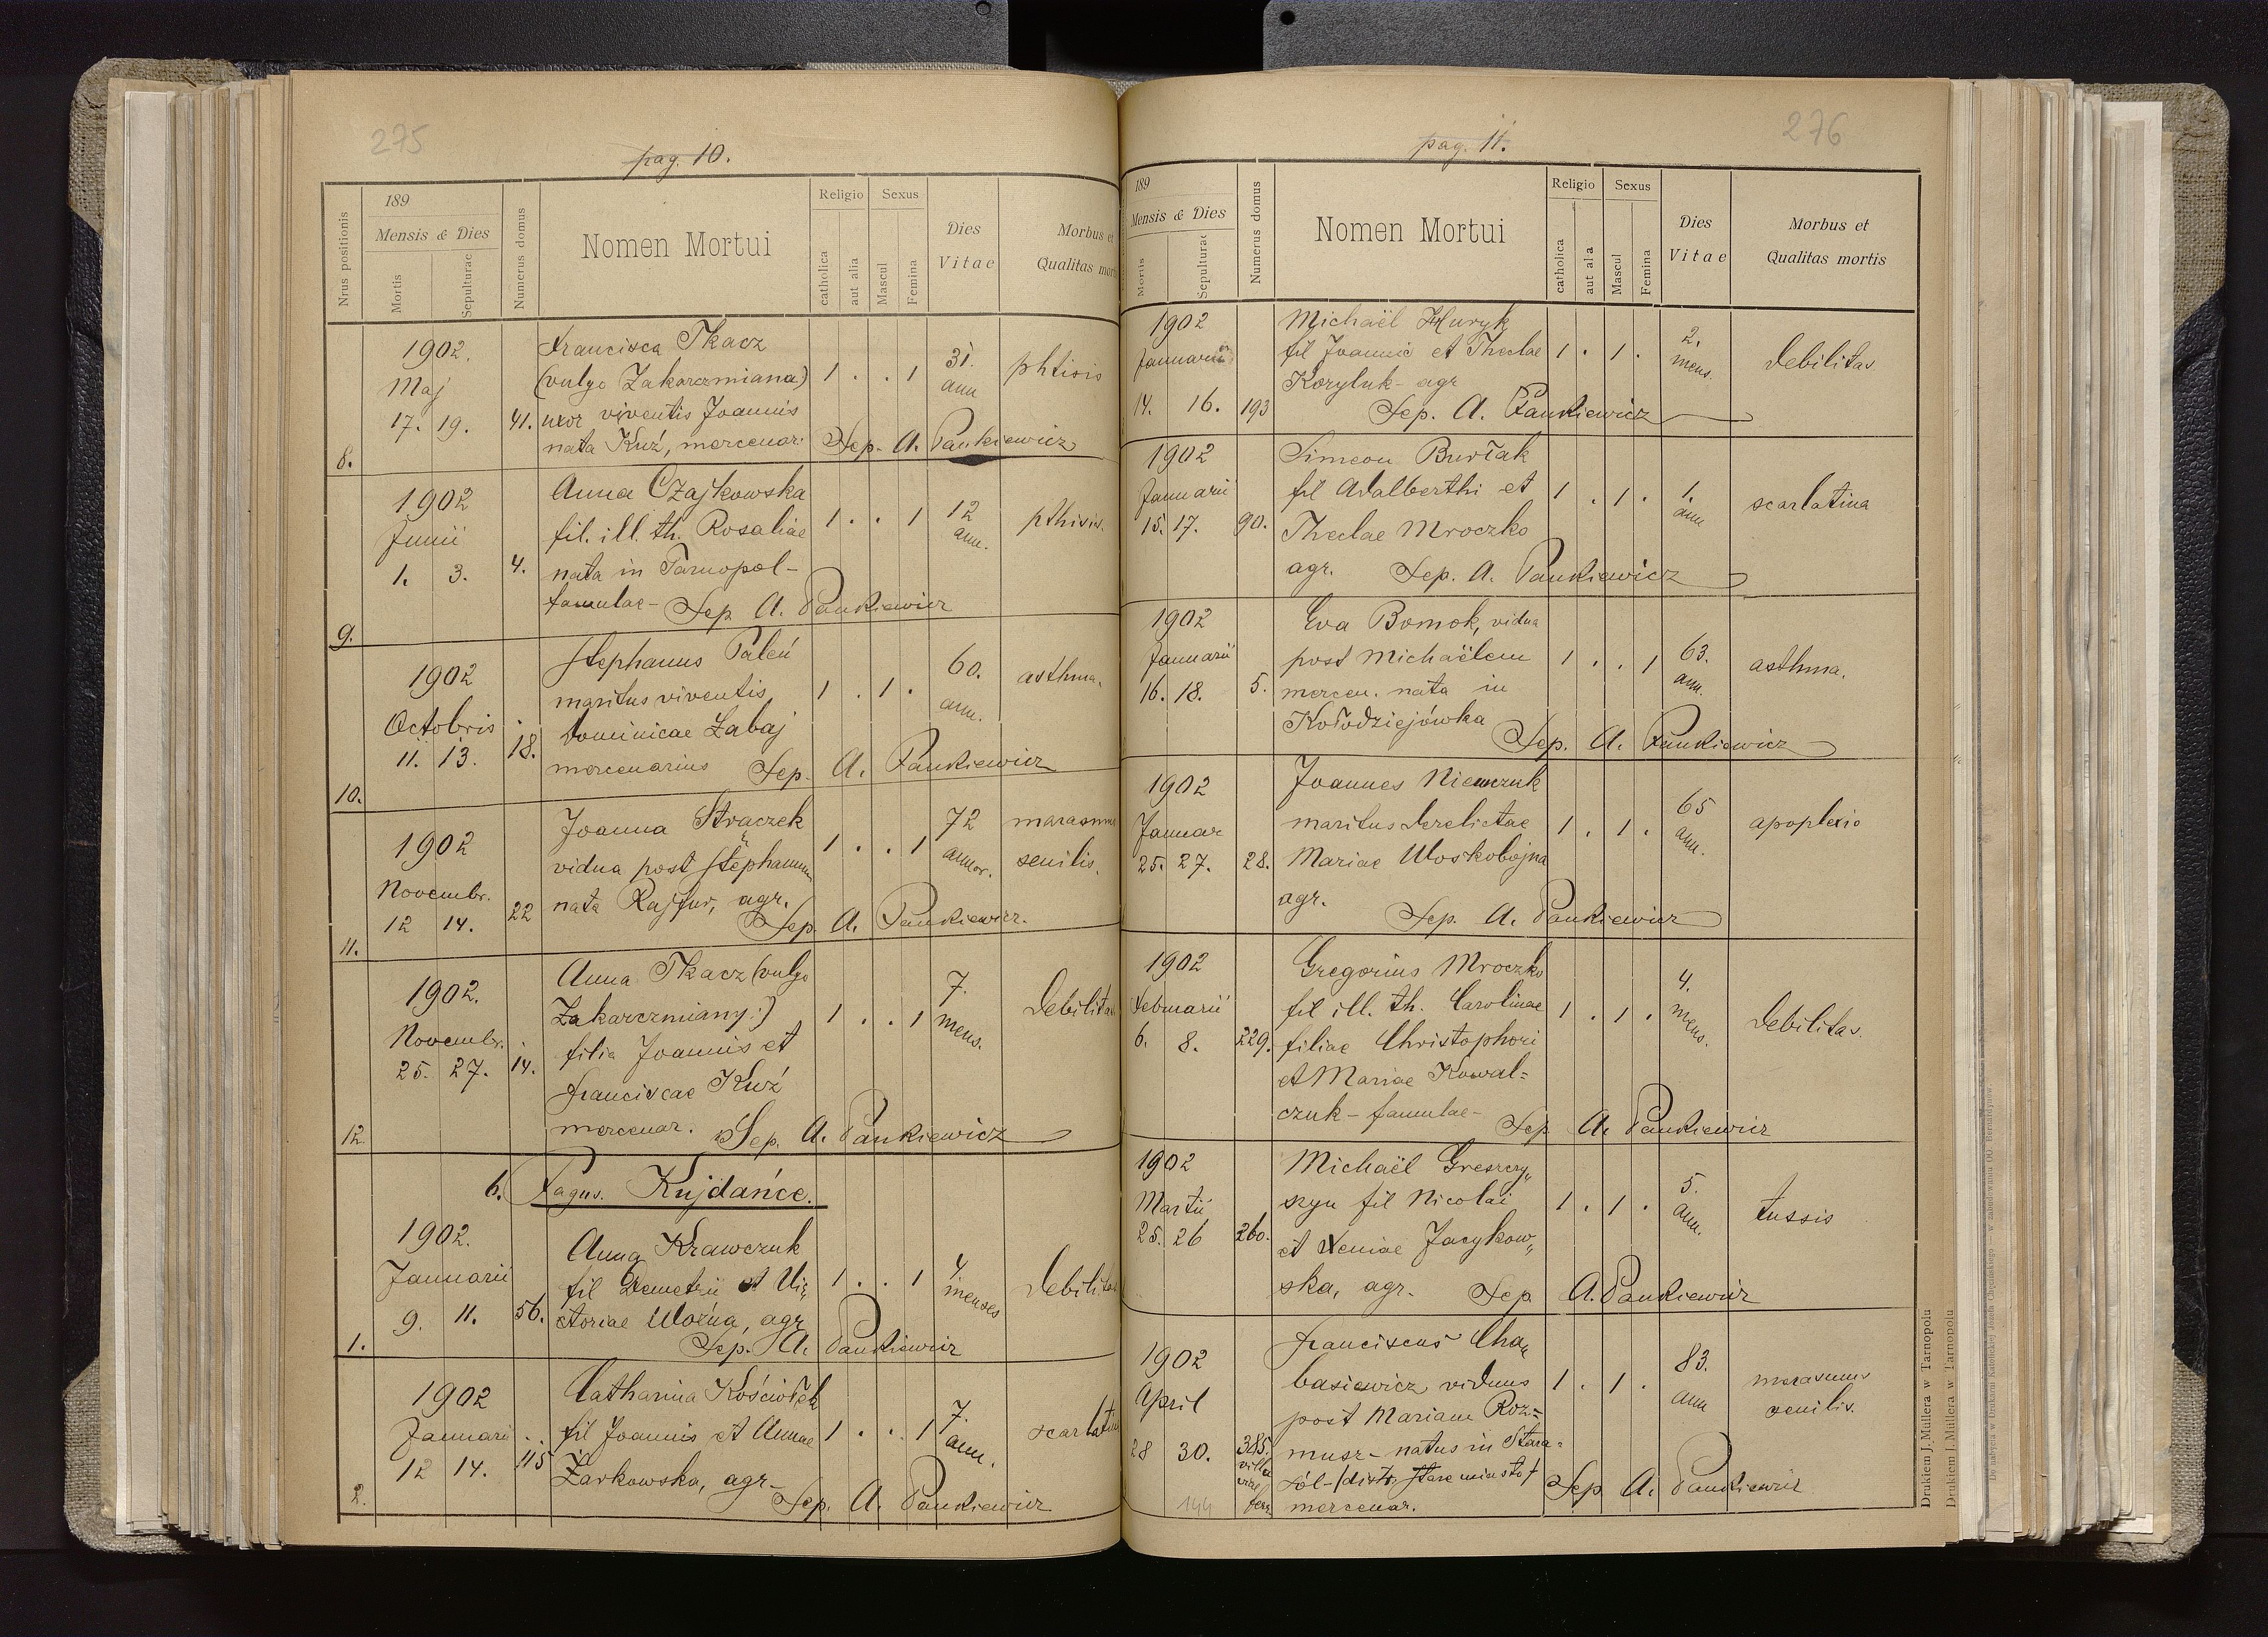 275
pag. 10.
189
Mensis & Dies
Nrus positionis
Mortis
Sepulturae
Numerus domus
Nomen Mortui
Religio
catholica
aut alia
Sexus
Mascul
Femina
Dies
Vitae
Morbus et
Qualitas mortis
1902.
Maj
17. 19.
41.
8.
Francisca Tkacz
(vulgo Zakarczmiana)
uxor viventis Joannis
nata Kuź, mercenar.
1 . . 1
31.
ann
phtisis
Sep. A. Pankiewicz
1902
Junii
1. 3.
4.
9.
Anna Czajkowska
fil. ill. th. Rosaliae
nata in Tarnopol-
famulae-
1 . . 1
12
ann.
pthisis.
Sep. A. Pankiewicz
1902
Octobris
11. 13.
18.
10.
Stephanus Paleń
maritus viventis
Dominicae Zabaj
mercenarius
1 . 1 .
60.
ann.
asthma.
Sep. A. Pankiewicz
1902
Novembr.
12 14.
22
11.
Joanna Strączek
vidua post Stephanum
nata Rajfur, agr.
1 . . 1
72
annor.
marasmus
senilis.
Sep. A. Pankiewicz.
1902.
Novembr.
25. 27.
14.
12.
Anna Tkacz (vulgo
Zakarczmiany:)
filia Joannis et
Franciscae Kuź
mercenar.
1 . . 1
7.
mens.
Debilitas
Sep. A. Pankiewicz
6. Pagus. Kujdańce.
1902.
Januarii
9. 11.
56.
1.
Anna Krawczuk
fil Demetrii et Vi„
ctoriae Woźna, agr
1 . . 1
4
menses
Debilitas
Sep. A. Pankiewicz
1902
Januarii
12 14.
115
2.
Catharina Kościołek
fil Joannis et Annae
Żarkowska, agr-
1 . . 1
7.
ann.
scarlatina
Sep. A. Pankiewicz
276
pag. 11.
189
Mensis & Dies
Mortis
Sepulturae
Numerus domus
Nomen Mortui
Religio
catholica
aut alia
Sexus
Mascul
Femina
Dies
Vitae
Morbus et
Qualitas mortis
1902
Januarii
14. 16.
193
Michaël Huryk
fil Joannis et Theclae
Koryluk- agr
1 . 1 .
2.
mens.
Debilitas
Sep. A. Pankiewicz
1902
Januarii
15. 17.
90.
Simeon Burłak
fil Adalberthi et
Theclae Mroczko
agr.
1 . 1 .
1.
ann
scarlatina
Sep. A. Pankiewicz
1902
Januarii
16. 18.
5.
Eva Bomok, vidua
post Michaëlem
mercen. nata in
Kołodziejówka
1 . . 1
63.
ann.
asthma.
Sep. A. Pankiewicz
1902
Januar
25. 27.
28.
Joannes Niemczuk
maritus derelictae
Mariae Woskobojna
agr.
1 . 1 .
65
ann.
apoplexio
Sep. A. Pankiewicz
1902
Februarii
6. 8.
229.
Gregorius Mroczko
fil ill. th. Carolinae
filiae Christophori
et Mariae Kowal=
czuk- famulae-
1 . 1 .
4.
mens.
Debilitas.
Sep A. Pankiewicz
1902
Martii
25. 26
260.
Michaël Greszczy„
szyn fil Nicolai
et Xeniae Jacykow„
ska, agr.
1 . 1 .
5.
ann.
tussis
Sep A. Pankiewicz
1902
April
28 30.
385.
Franciscus Cha„
basiewicz viduus
post Mariam Roz=
musz- natus in Stara-
sól-(distr. Stare miasto)
mercenar.
1 . 1 .
83.
ann
marasmus
senilis.
Sep A. Pankiewicz
144
Drukiem J. Müllera w Tarnopolu
Drukiem J. Müllera w Tarnopolu